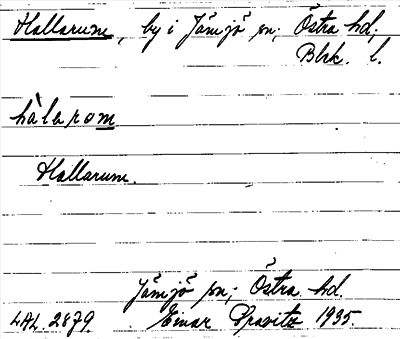 Hallarum, by i Jämjö sn; Östra hd;
Blek. l.
hàlarom
Hallarum.
Jämjö sn; Östra hd.
LAL. 2879. Einar 1935.